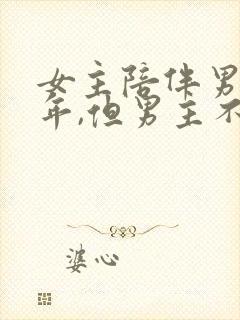 女主陪伴男
年,但男主不
婆心